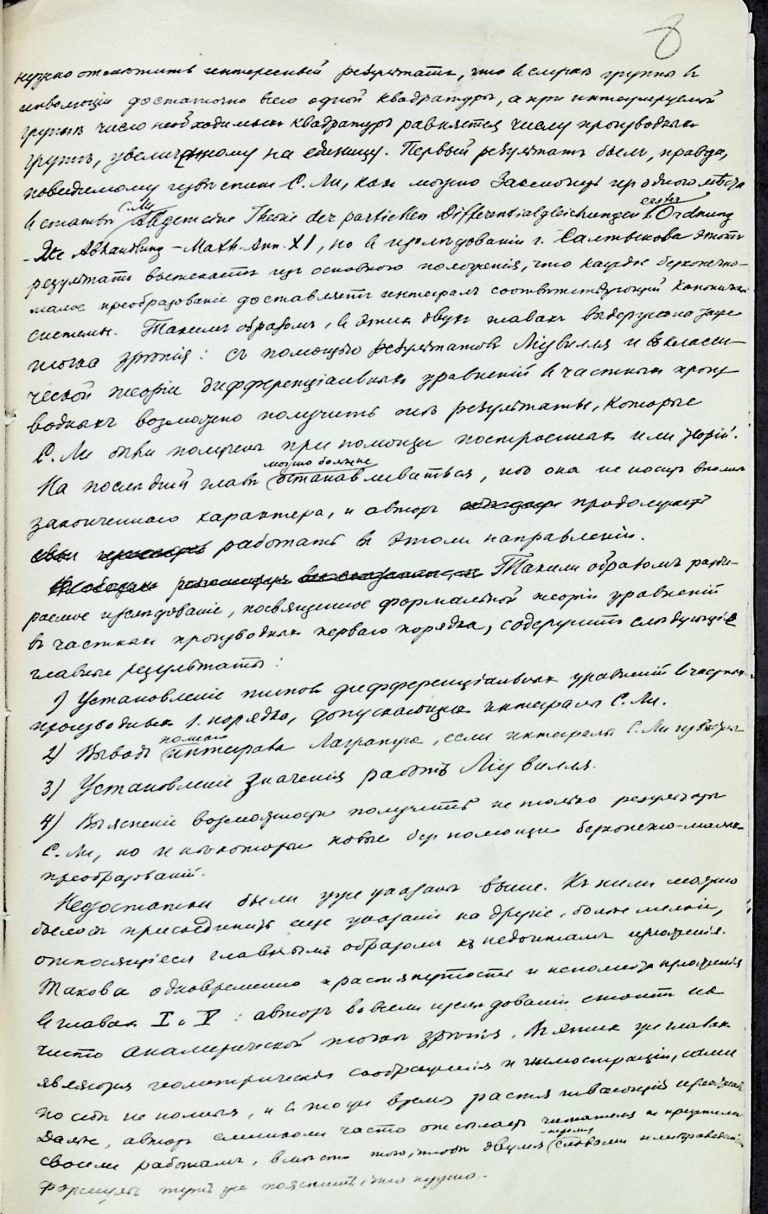 8
нужно отметить интересный результатъ, что въ случаѣ группы въ
инволюціи достаточно всего одной квадратуры, а при интегрируемой
группѣ число необходимыхъ квадратуръ равняется числу производныхъ
группъ, увеличенному на единицу. Первый результатъ былъ, правда,
повидимому извѣстенъ С. Ли, какъ можно заключить изъ одного мѣста
въ статьѣ Ли Allgemeine Theorie der partiellen Differentialgleichungen erster Ordnung
- 2te Abhandlung - Math. Ann. XI, но въ изслѣдованіи г. Салтыкова этотъ
результатъ вытекаетъ изъ основного положенія, что каждое безконечно-
малое преобразованіе доставляетъ интегралъ соотвѣтствующей канонич.
системы. Такимъ образомъ, въ этихъ двухъ главахъ выдержана таже
точка зрѣнія: съ помощью результатовъ Ліувилля и классі-
ческой теоріи дифференціальныхъ уравненій въ частныхъ произ-
водныхъ возможно получить тѣ результаты, которые
С. Ли были получены при помощи построенныхъ имъ теорій.
На послѣдней главѣ можно больше останавливаться, что она не носитъ вполнѣ
законченнаго характера, и авторъ продолжаетъ
работать въ этомъ направленіи.
Такимъ образомъ разби-
раемое изслѣдованіе, посвященное формальной теоріи уравненій
въ частныхъ производныхъ перваго порядка, содержитъ слѣдующіе
главные результаты:
1) Установленіе типовъ дифференціальныхъ уравненій въ частныхъ
производныхъ 1. порядка, допускающихъ интегралы С. Ли.
2) Выводъ полнаго интеграла Лагранжа, если интегралъ С. Ли извѣстенъ
3) Установленіе значенія работъ Ліувилля.
4) Выясненіе возможности получить не только результаты
С. Ли, но и нѣкоторые новые безъ помощи безконечно-малыхъ
преобразованій.
Недостатки были уже указаны выше. Къ нимъ можно
было присоединить еще указанія на другіе, болѣе мелкіе,
относящіеся главнымъ образомъ къ недочетамъ изложенія.
Такова одновременно растянутость и неполнота изложенія
въ главахъ I и V: авторъ во всемъ изслѣдованіи стоитъ на
чисто аналитической точкѣ зрѣнія. Въ этихъ же главахъ
являются геометрическія соображенія и иллюстраціи, сами
по себѣ не полныя, и въ тоже время растягивающія изложеніе
Далѣе, авторъ слишкомъ часто отсылаетъ читателя къ прежнимъ
своимъ работамъ, вмѣсто того, чтобы двумя словами или приведеніемъ
формулъ тутъ же пояснить что нужно.